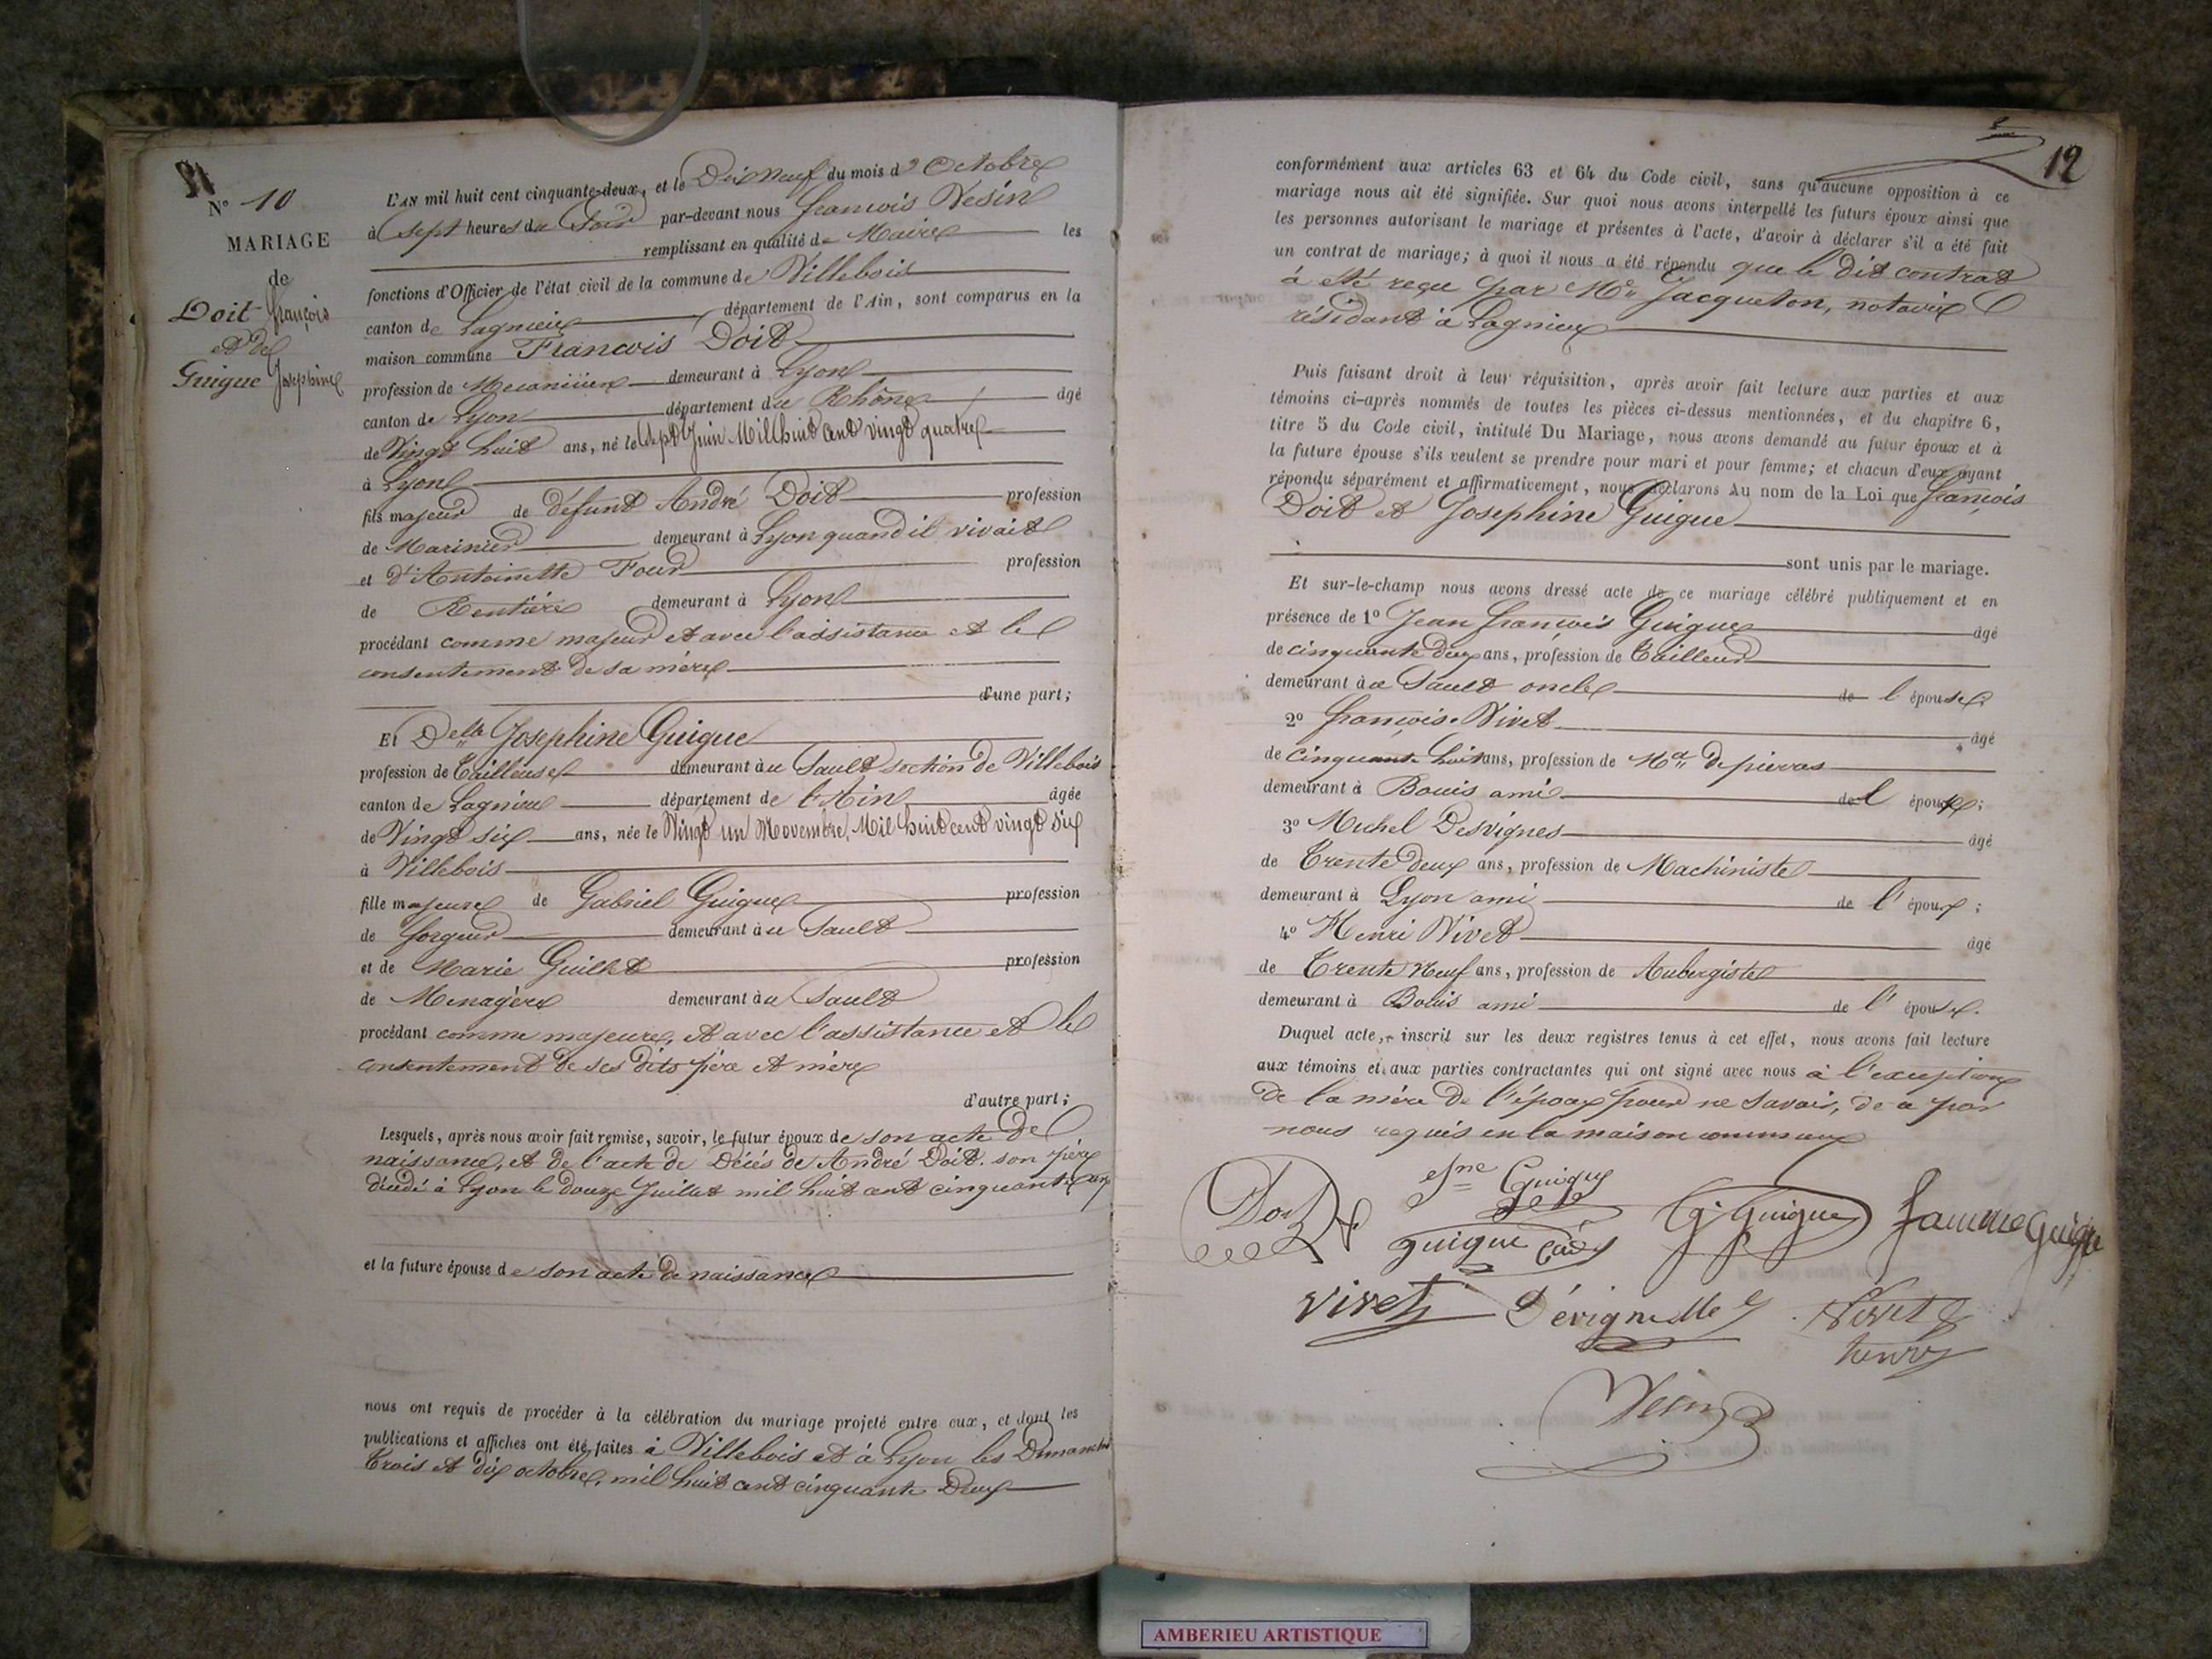 N° 10
MARIAGE
de
Doit françois
et de
Guigue Josephine
L'AN mil huit cent cinquante-deux, et le Dix Neuf du mois d'Octobre
à sept heures du Soir par-devant nous françois Vesin
remplissant en qualité de Maire les
fonctions d'Officier de l'état civil de la commune de Villebois
canton de Lagnieux département de l'Ain, sont comparus en la
maison commune Francois Doit
profession de Mecanicien demeurant à Lyon
canton de Lyon département du Rhône âgé
de Vingt huit ans, né le sept Juin Mil huit cent vingt quatre
à Lyon
fils majeur de défunt André Doit profession
de Marinier demeurant à Lyon quand il vivait
et d'Antoinette Four profession
de Rentière demeurant à Lyon
procédant comme majeur et avec l'assistance et le
consentement de sa mère
d'une part;
Et Delle Josephine Guigue
profession de Tailleuse demeurant au Sault section de Villebois
canton de Lagnieu département de l'Ain âgée
de Vingt six ans, née le Vingt un Novembre, Mil huit cent vingt six
à Villebois
fille majeure de Gabriel Guigue profession
de forgeur demeurant au Sault
et de Marie Guillet profession
de Menagère demeurant au Sault
procédant comme majeure, et avec l'assistance et le
consentement de ses dits père et mère
d'autre part;
Lesquels, après nous avoir fait remise, savoir, le futur époux de son acte de
naissance, et de l'acte de Décés de André Doit son père
décédé à Lyon le douze Juillet mil huit cent cinquante un
et la future épouse de son acte de naissance
nous ont requis de procéder à la célébration du mariage projeté entre eux, et dont les
publications et affiches ont été faites à Villebois et à Lyon les Dimanches
Trois et dix octobre, mil huit cent cinquante Deux
12
conformément aux articles 63 et 64 du Code civil, sans qu'aucune opposition à ce
mariage nous ait été signifiée. Sur quoi nous avons interpellé les futurs époux ainsi que
les personnes autorisant le mariage et présentes à l'acte, d'avoir à déclarer s'il a été fait
un contrat de mariage; à quoi il nous a été répondu que le dit contrat
à été reçu par Me Jacqueton, notaire
résidant à Lagnieux
Puis faisant droit à leur réquisition, après avoir fait lecture aux parties et aux
témoins ci-après nommés de toutes les pièces ci-dessus mentionnées, et du chapitre 6,
titre 5 du Code civil, intitulé Du Mariage, nous avons demandé au futur époux et à
la future épouse s'ils veulent se prendre pour mari et pour femme; et chacun d'eux ayant
répondu séparément et affirmativement, nous déclarons Au nom de la Loi que françois
Doit et Josephine Guigue
sont unis par le mariage.
Et sur-le-champ nous avons dressé acte de ce mariage célébré publiquement et en
présence de 1° Jean françois Guigue âgé
de cinquante deux ans, profession de Tailleur
demeurant à u Sault oncle de l'épouse
2° françois Vivet âgé
de cinquante huit ans, profession de Md de pierres
demeurant à Bouis ami de l'épouse;
3° Michel Desvignes âgé
de Trente deux ans, profession de Machiniste
demeurant à Lyon ami de l'époux;
4° Henri Vivet âgé
de Trente Neuf ans, profession de Aubergiste
demeurant à Bouis ami de l'épouse.
Duquel acte, inscrit sur les deux registres tenus à cet effet, nous avons fait lecture
aux témoins et aux parties contractantes qui ont signé avec nous à l'exception
de la mère de l'époux pour ne savoir, de ce par
nous requis en la maison commune
Doit
Jne Guigue
guigue
G. Guigue
famme Guigue
Vivet
Vivet
henry
Vesin
AMBERIEU ARTISTIQUE